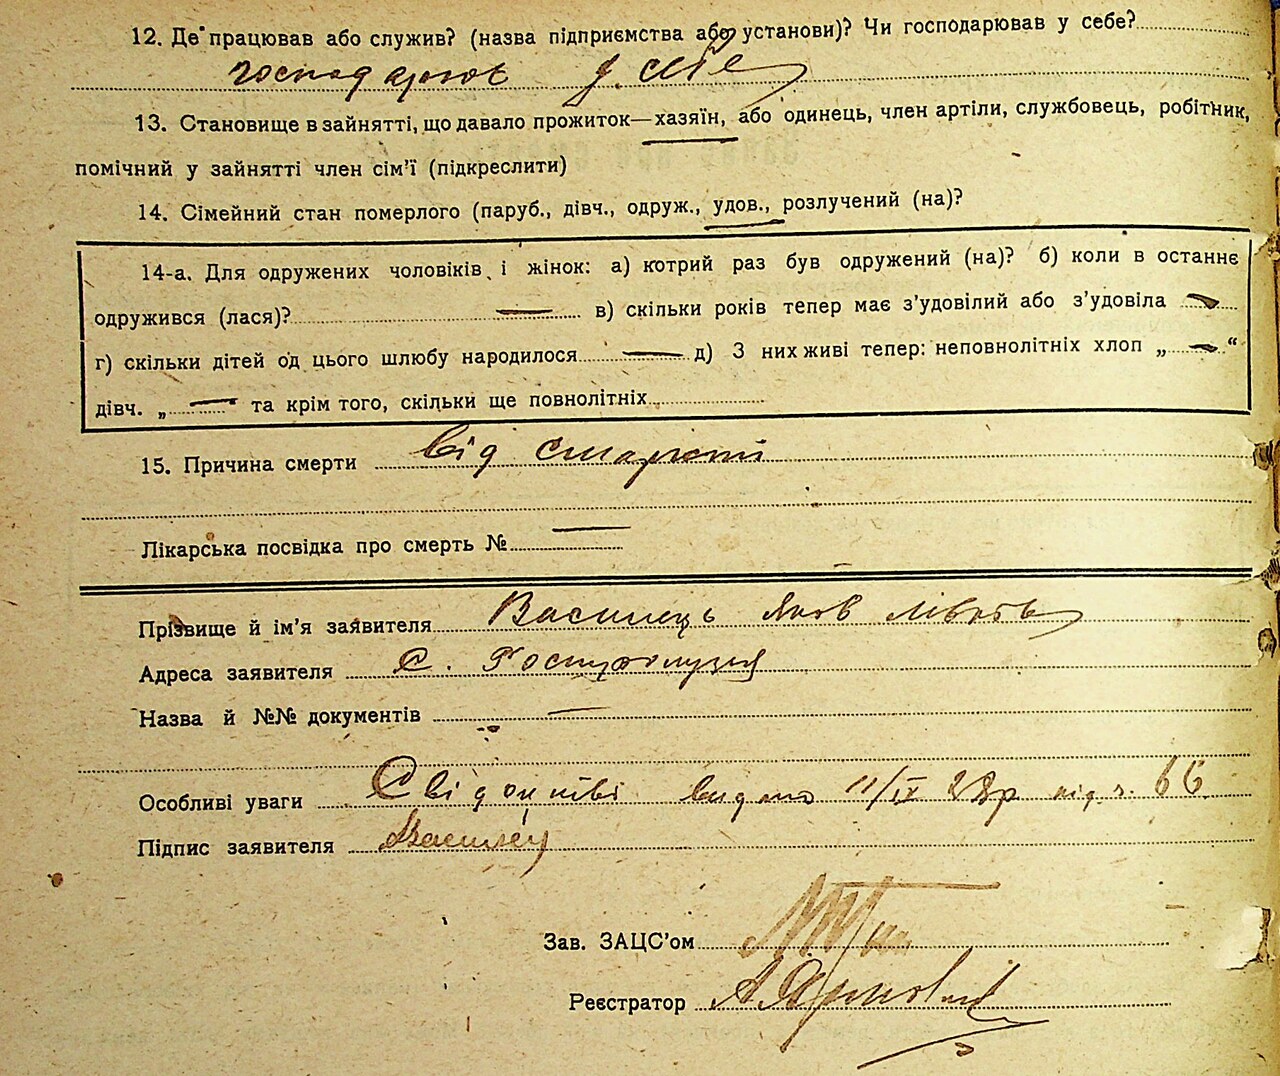 12. Де працював або служив? (назва підприємства або установи)? Чи господарював у себе?
господарював у себе
13. Становище в зайнятті, що давало прожиток—хазяїн, або одинець, член артіли, службовець, робітник,
помічний у зайнятті член сім’ї (підкреслити)
14. Сімейний стан померлого (паруб., дівч., одруж., удов., розлучений (на)?
14-а. Для одружених чоловіків і жінок: а) котрий раз був одружений (на)? б) коли в останнє
одружився (лася)? — в) скільки років тепер має з’удовілий або з’удовіла —
г) скільки дітей од цього шлюбу народилося — д) З них живі тепер: неповнолітніх хлоп „ — “
дівч. „ — “ та крім того, скільки ще повнолітніх
15. Причина смерти від старости
Лікарська посвідка про смерть № —
Прізвище й ім’я заявителя Василець Яков
Адреса заявителя с.
Назва й №№ документів —
Особливі уваги видано 11/IX 28р під ч. 66
Підпис заявителя Василец
Зав. ЗАЦС’ом
Реєстратор А.